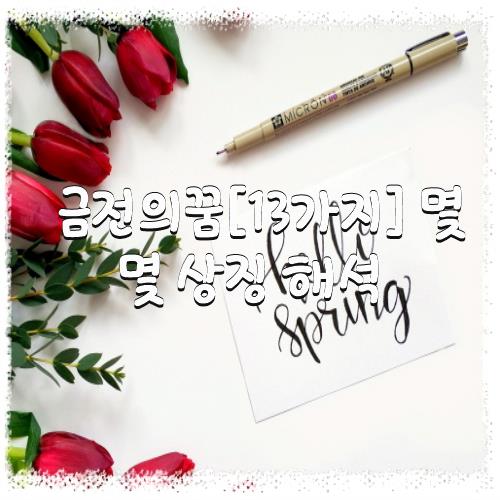 MICRON
금전의꿈[13가지] 몇
몇 상징 해석
hello
spring